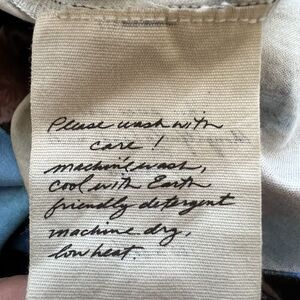 Please wash with
care!
machine wash,
cool with Earth
friendly detergent
machine dry,
low heat.